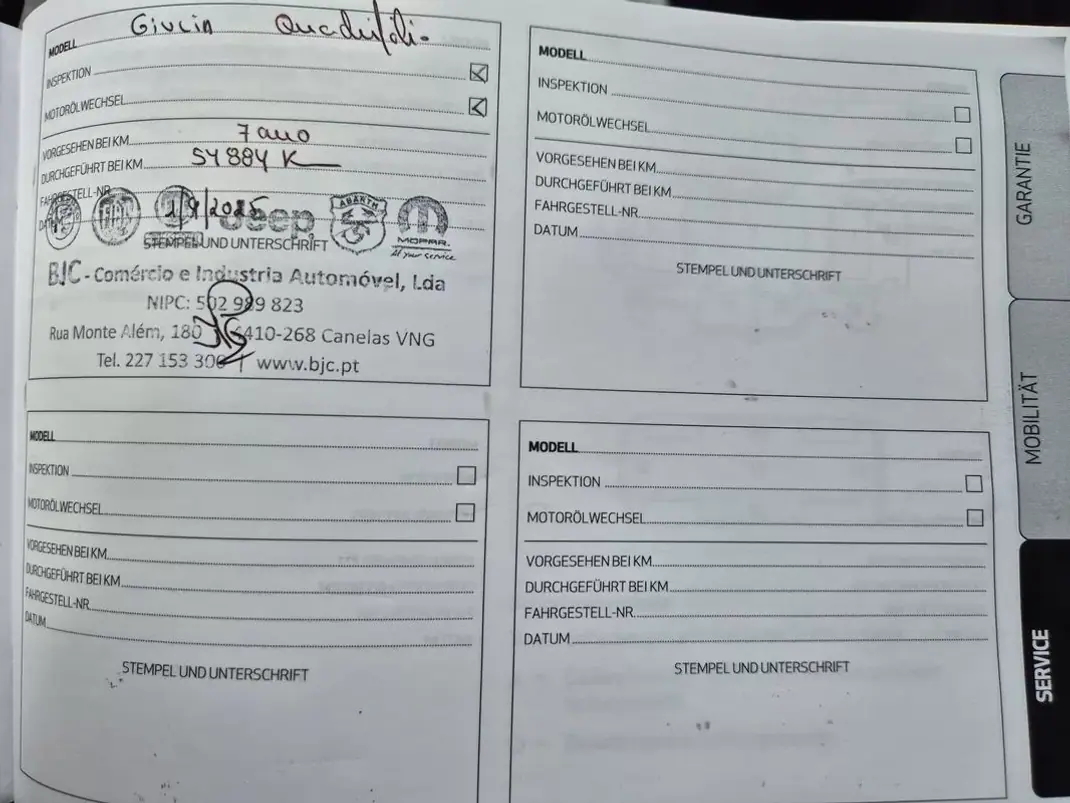 MODELL Giulia Quadrifoli
INSPEKTION
MOTORÖLWECHSEL
VORGESEHEN BEI KM 7 ano
DURCHGEFÜHRT BEI KM 54 884 K
FAHRGESTELL-NR.
DATUM 1/9/2025
Jeep
ABARTH
MOPAR.
At your service
STEMPEL UND UNTERSCHRIFT
BJC - Comércio e Industria Automóvel, Lda
NIPC: 502 989 823
Rua Monte Além, 180 4410-268 Canelas VNG
Tel. 227 153 300 | www.bjc.pt
MODELL
INSPEKTION
MOTORÖLWECHSEL
VORGESEHEN BEI KM
DURCHGEFÜHRT BEI KM
FAHRGESTELL-NR.
DATUM
STEMPEL UND UNTERSCHRIFT
MODELL
INSPEKTION
MOTORÖLWECHSEL
VORGESEHEN BEI KM
DURCHGEFÜHRT BEI KM
FAHRGESTELL-NR.
DATUM
STEMPEL UND UNTERSCHRIFT
MODELL
INSPEKTION
MOTORÖLWECHSEL
VORGESEHEN BEI KM
DURCHGEFÜHRT BEI KM
FAHRGESTELL-NR.
DATUM
STEMPEL UND UNTERSCHRIFT
GARANTIE
MOBILITÄT
SERVICE